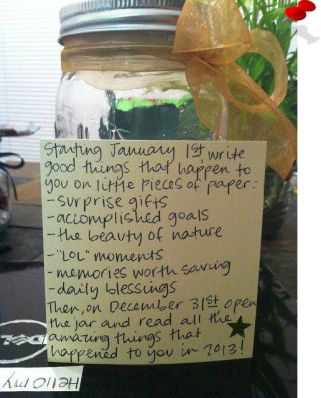 Starting January 1st, write
good things that happen to
you on little pieces of paper:
- surprise gifts
- accomplished goals
- the beauty of nature
- "LOL" moments
- memories worth saving
- daily blessings
Then, on December 31st open
the jar and read all the
amazing things that
happened to you in 2013!
DELL
Hello my